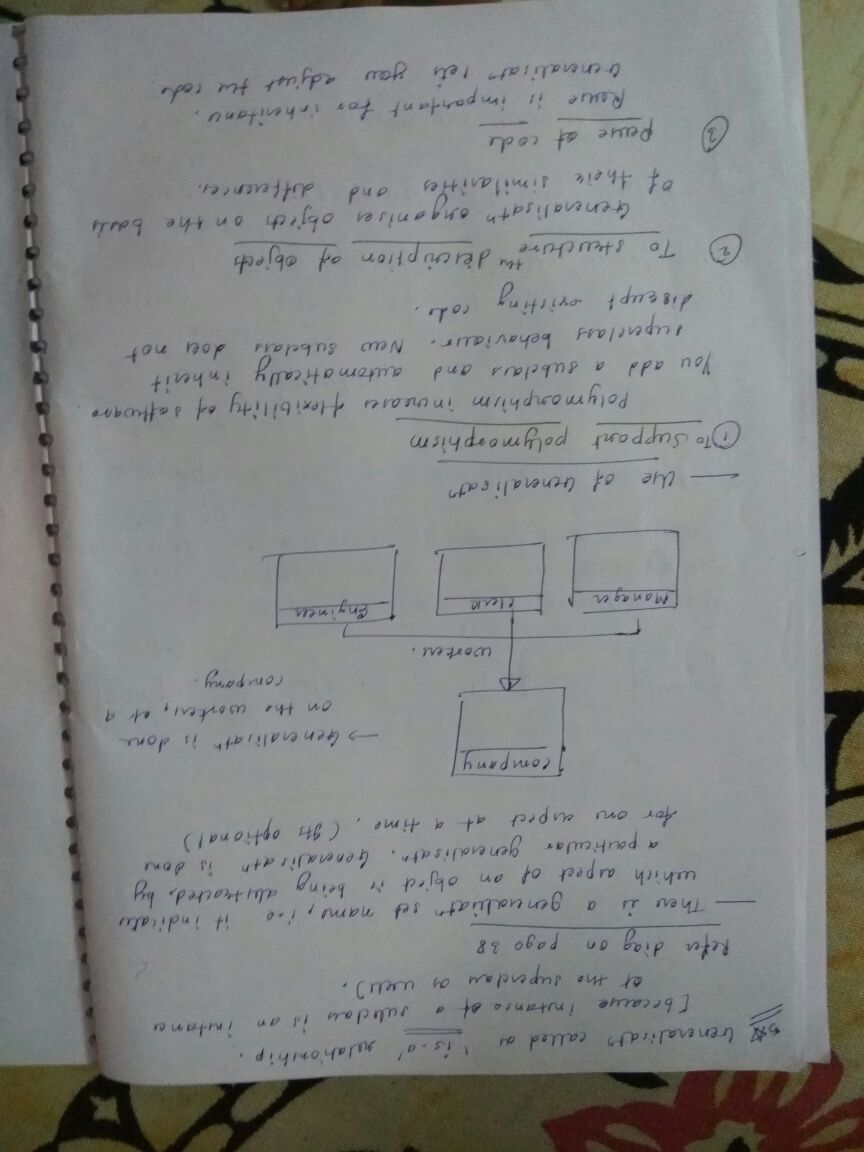 Generalisatⁿ called as 'is-a' relationship.
[because instance of a subclass is an instance
of the superclass as well).
Refer diag on page 38
— There is a generalisatⁿ set name, i.e it indicates
which aspect of an object is being abstracted, by
a particular generalisatⁿ. Generalisatⁿ is done
for one aspect at a time. (Its optional)
Company
→ Generalisatⁿ is done
on the workers, of a
company.
worker.
Manager
Clerk
Engineer
— Use of Generalisatⁿ
① To Support polymorphism
Polymorphism increases flexibility of software
You add a subclass and automatically inherit
superclass behaviour. New subclass does not
disrupt existing code.
② To structure the description of objects
Generalisatⁿ organises object on the basis
of their similarities and differences.
③ Reuse of code
Reuse is important for inheritance.
Generalisatⁿ lets you adjust the code.